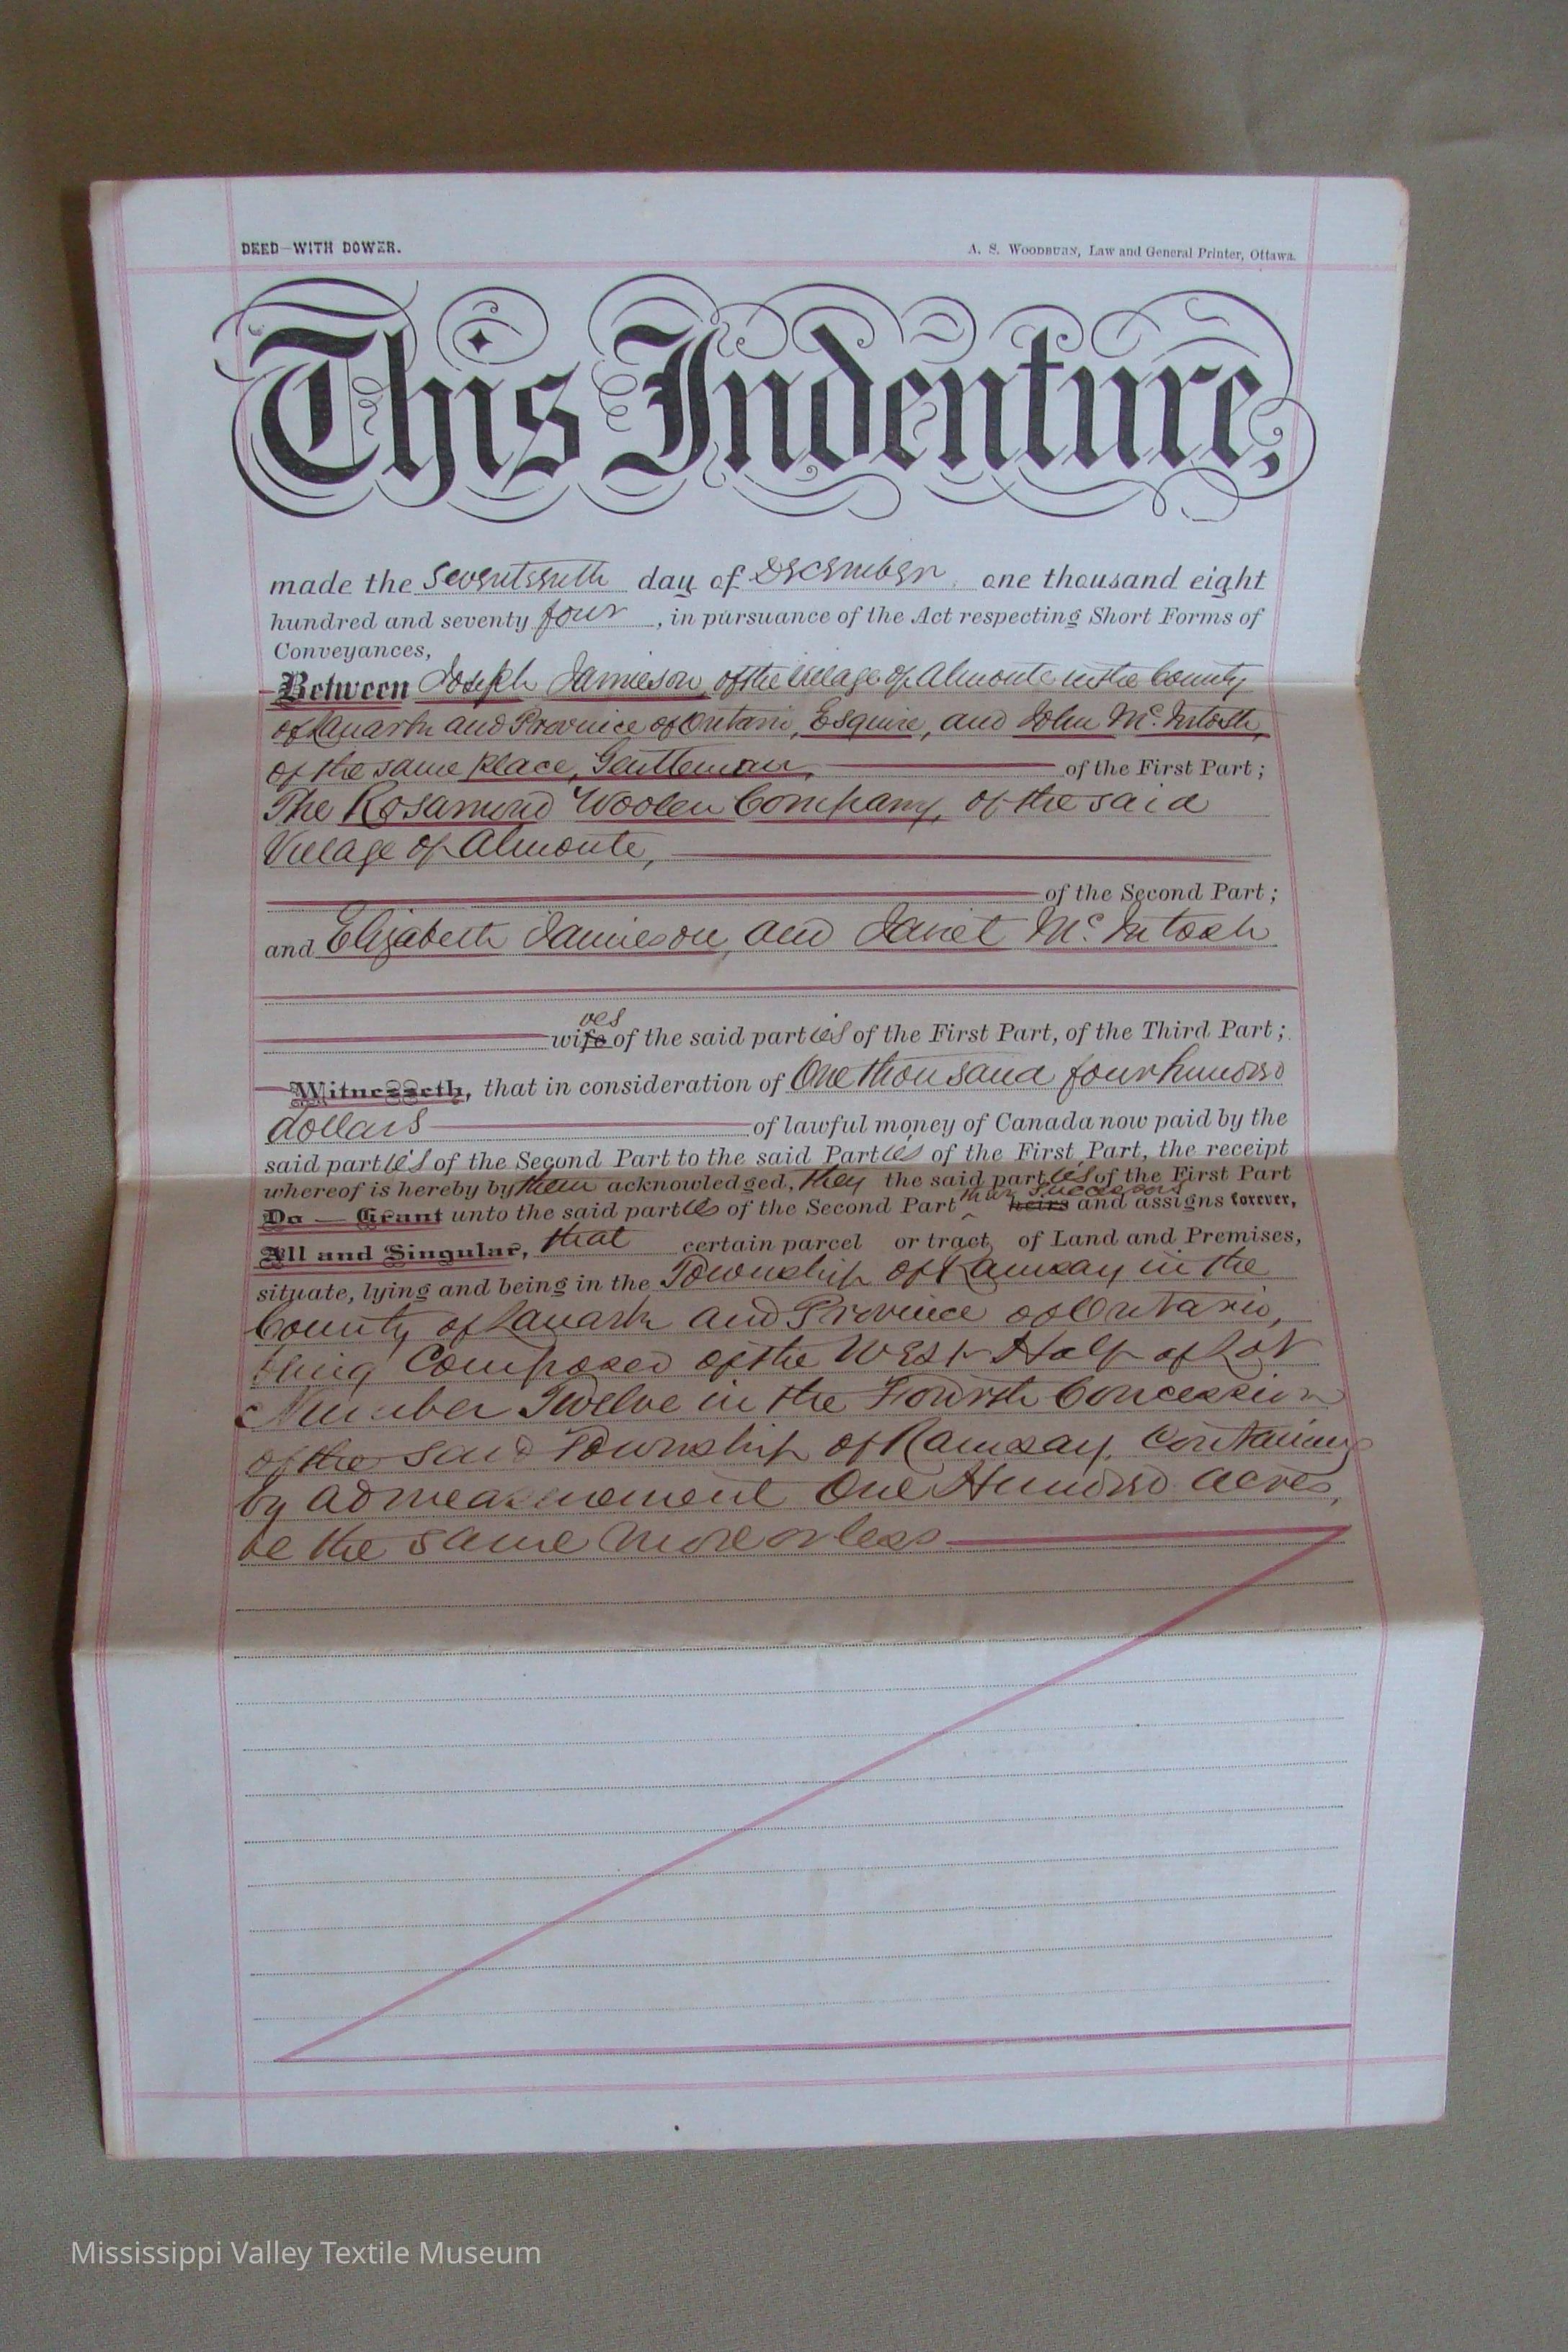 DEED—WITH DOWER.
A. S. WOODBURN, Law and General Printer, Ottawa.
This Indenture,
made the Seventeenth day of December one thousand eight
hundred and seventy four, in pursuance of the Act respecting Short Forms of
Conveyances,
Between Joseph Jamieson, of the Village of Almonte in the County
of Lanark and Province of Ontario, Esquire, and John McIntosh,
of the same place, Gentleman, of the First Part;
The Rosamond Woolen Company, of the said
Village of Almonte,
of the Second Part;
and Elizabeth Jamieson, and Janet McIntosh
ves
wife of the said parties of the First Part, of the Third Part;
Witnesseth, that in consideration of One thousand four hundred
dollars of lawful money of Canada now paid by the
said parties of the Second Part to the said Parties of the First Part, the receipt
whereof is hereby by them acknowledged, they the said parties of the First Part
their successors
Do — Grant unto the said parties of the Second Part heirs and assigns forever,
All and Singular, that certain parcel or tract of Land and Premises,
situate, lying and being in the Township of Ramsay in the
County of Lanark and Province of Ontario,
being Composed of the West Half of Lot
Number Twelve in the Fourth Concession
of the said Township of Ramsay, Containing
by admeasurement One Hundred acres,
be the same more or less
Mississippi Valley Textile Museum